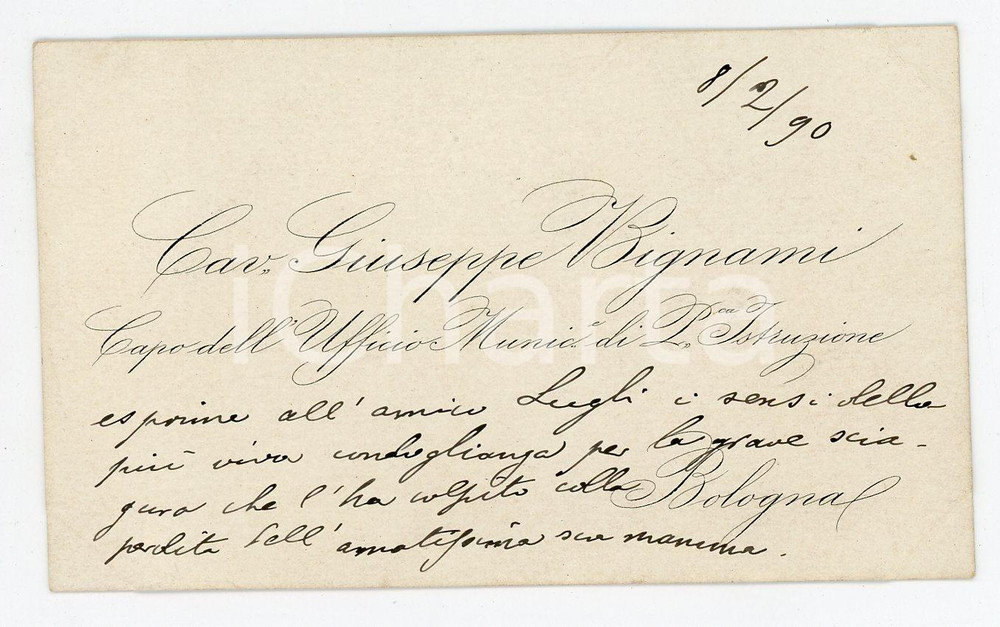 8/2/90
Cav. Giuseppe Bignami
Capo dell'Ufficio Munic.e di P.ca Istruzione
esprime all'amico Lugli i sensi della
più viva condoglianza per la grave scia-
gura che l'ha colpito colla
Bologna
perdita dell'amatissima sua mamma.
iCharta